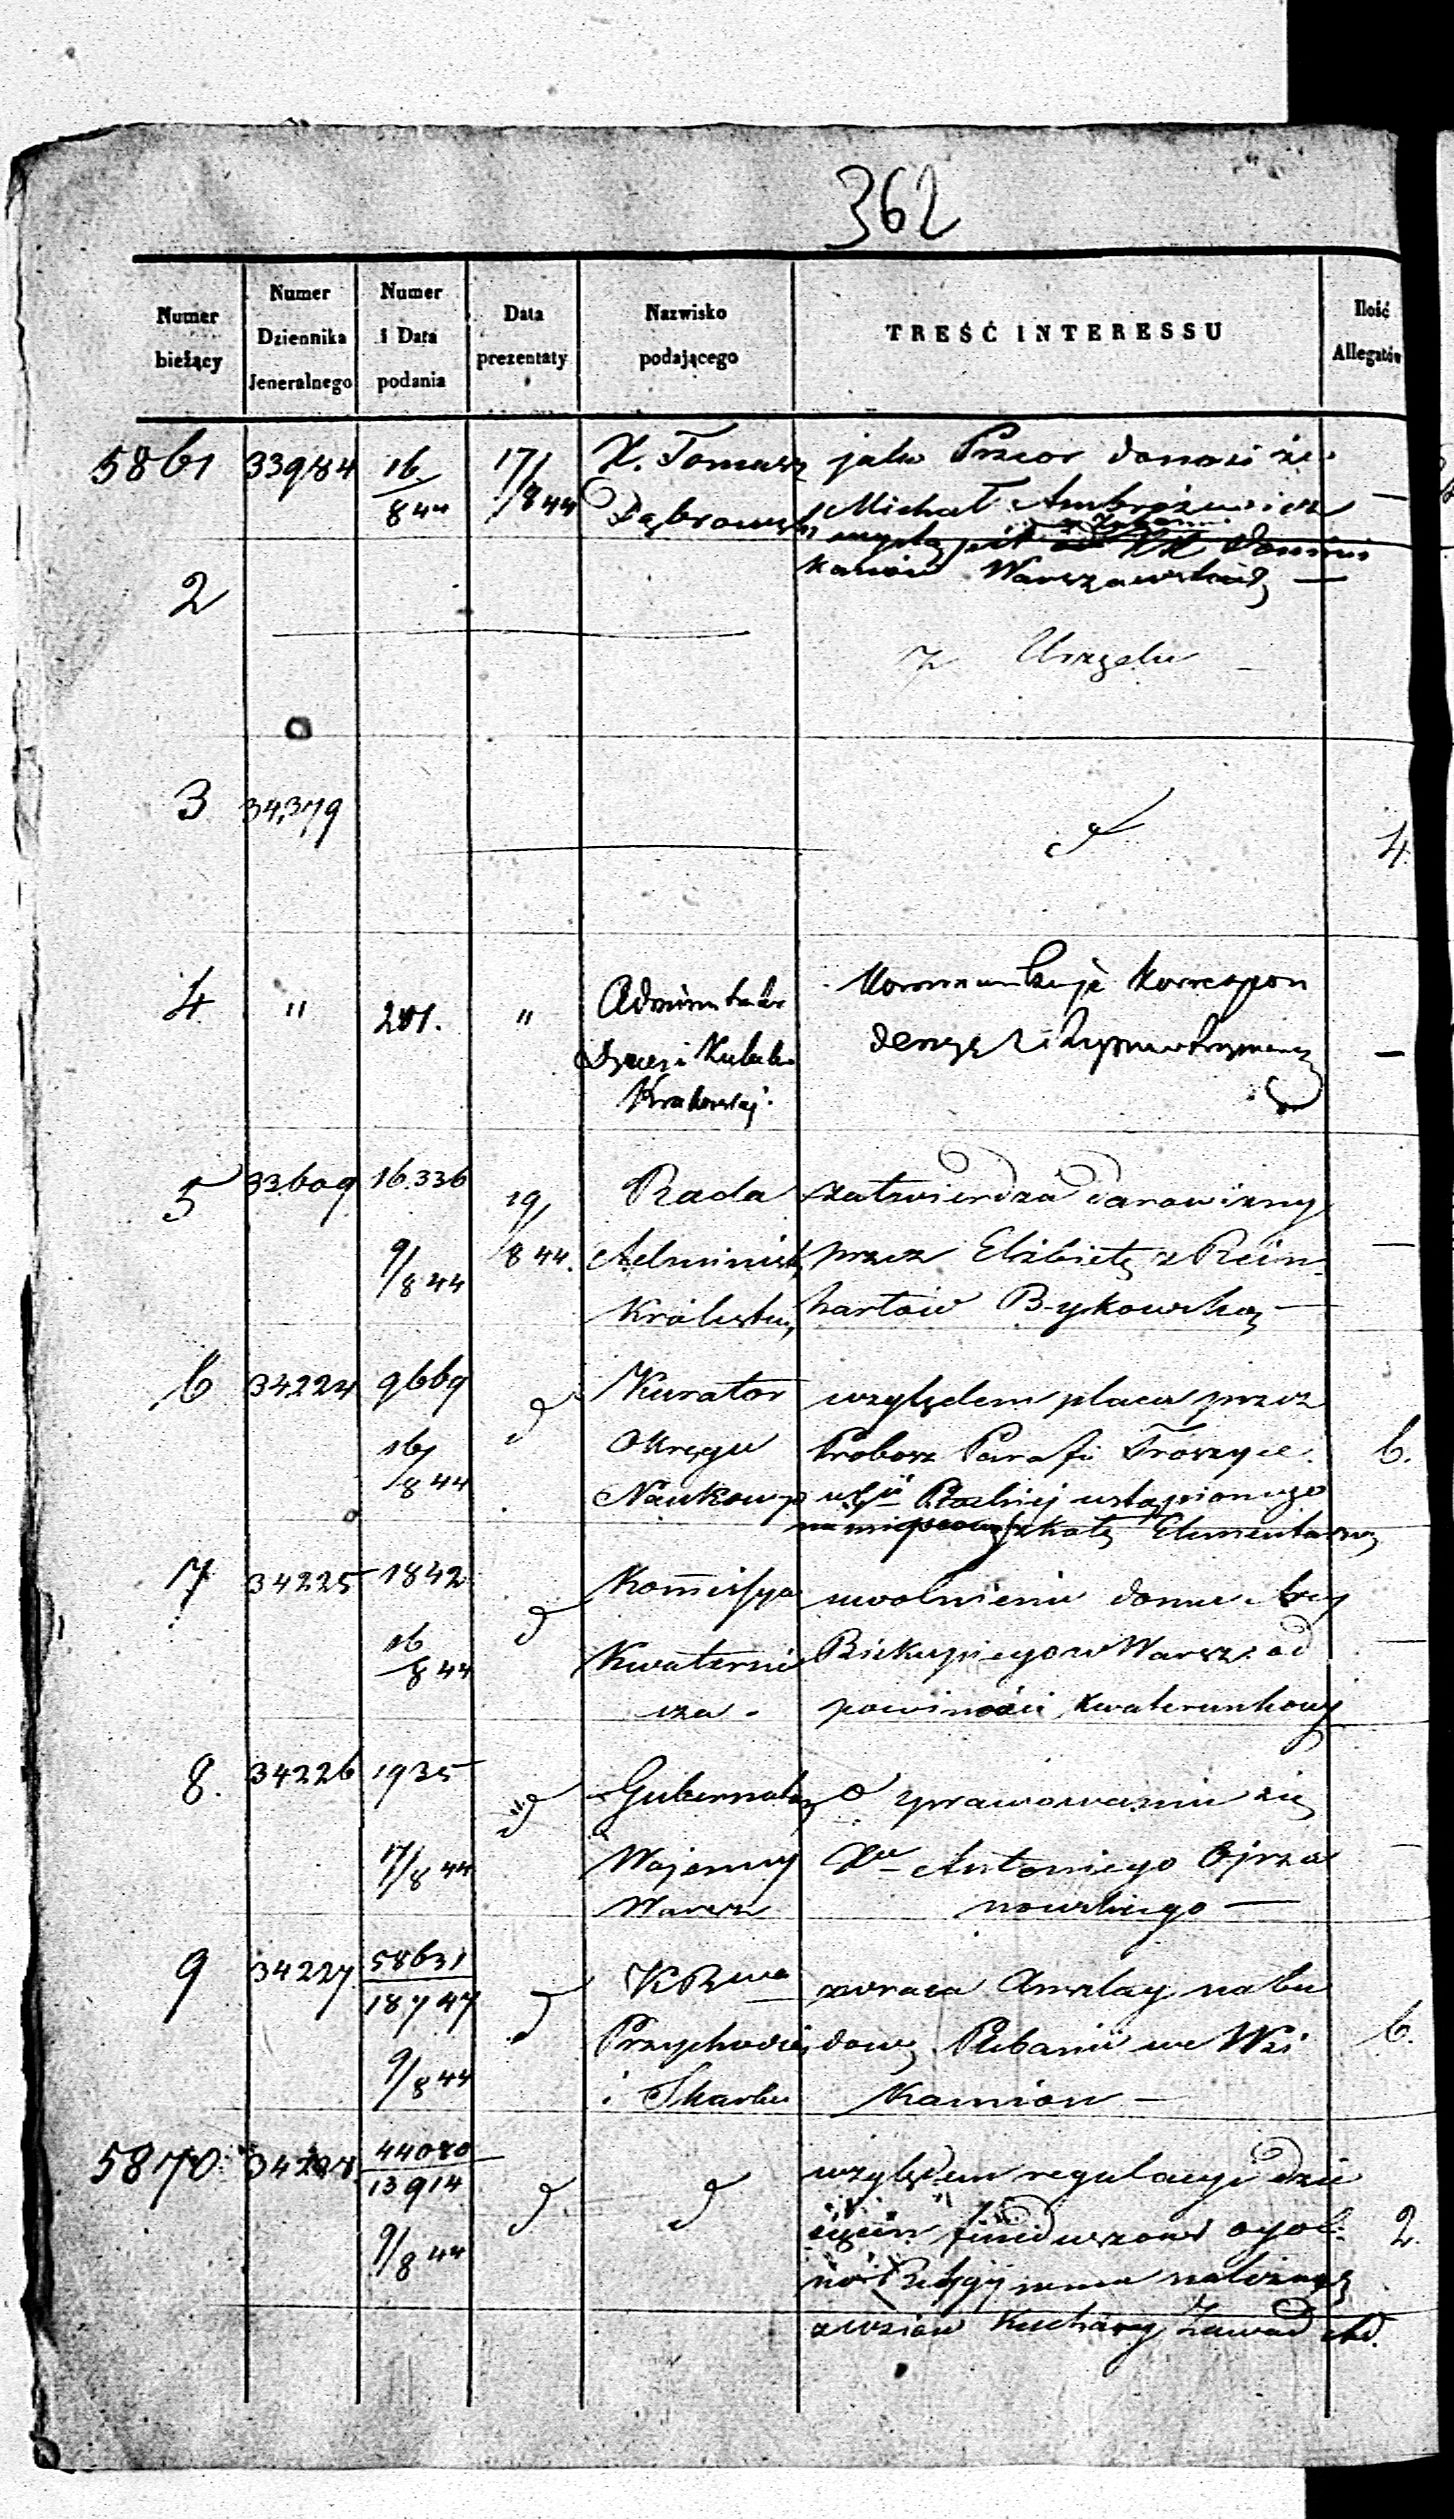 362
Numer bieżący
Numer Dziennika Jeneralnego
Numer i Data podania
Data prezentaty
Nazwisko podającego
TREŚĆ INTERESSU
Ilość Allegatów
5861 33984 16/844 17/844 X. Tomasz Dąbrowski
jako Przeor donosi że
Michał Ambrożewicz
wystąpił z Zakonu XX Domini
kanów Warszawskich —
2
z Urzędu —
3 34379 4
4 " 201. " Administrator Dyecezi Krakowskiej
Kommunikuje Korrespon
dencyę —
5 33609 16.336 9/844 19/844. Rada Administ. Królestwa
zatwierdza darowizny
przez Elżbietę z Rein
hartów Bykowską —
6 34224 9669 16/844 d Kurator Okręgu Naukow. 6.
względem placu przez
Probosz Parafi Troszyn
ustąpionego
na szkołę Elementarną
7 34225 1842 16/844 d Kommissya Kwaternicza —
uwolnienie domu Arcy
Biskupiego w Warsz: od
powinności kwaterunkowej
8. 34226 1935 17/844 d Gubernator Wojenny Warsz —
O sprawowaniu się
Xa Antoniego Ojrza
nowskiego —
9 34227 58631/18747 9/844 d KRwa Przychodów i Skarbu 6.
zwraca Anszlag na bu
dowę Plebanii we Wsi
Kamion —
5870 34228 44020/13914 9/844 d d 2.
względem regulacyi dzie
sięcin funduszowi ogól:
no Religijnemu należnych
z wsiów Kuchary, Zawad itd.